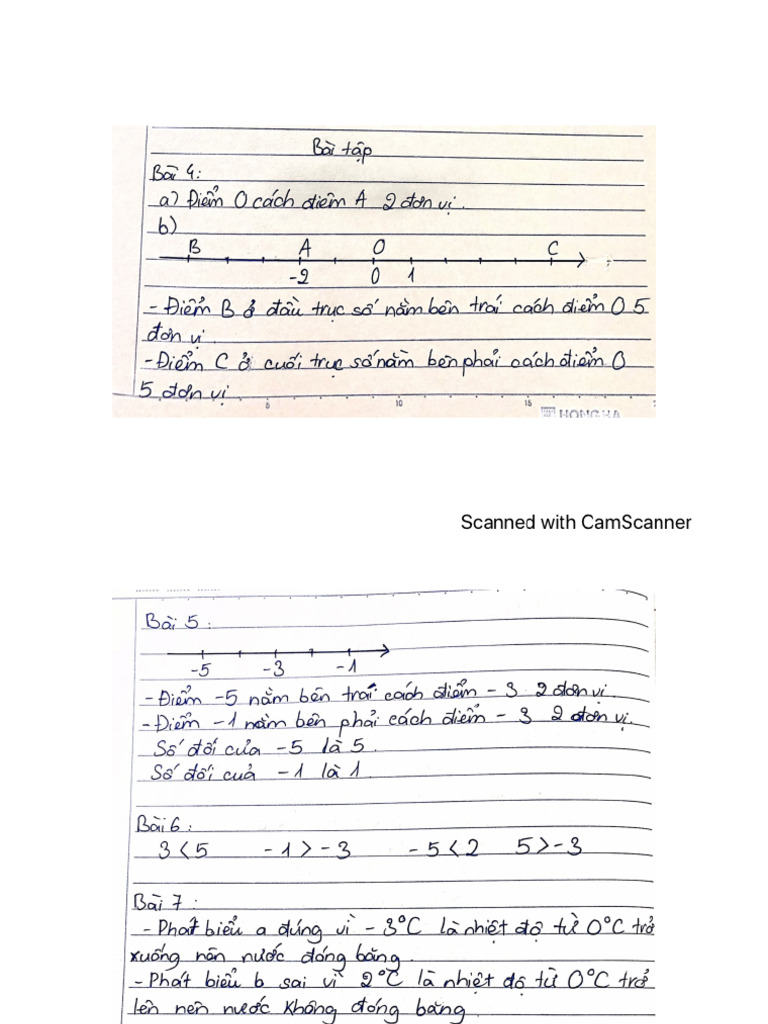 Bài tập
Bài 4:
a) Điểm O cách điểm A 2 đơn vị.
b)
B A O C
-2 0 1
- Điểm B ở đầu trục số nằm bên trái cách điểm O 5
đơn vị.
- Điểm C ở cuối trục số nằm bên phải cách điểm O
5 đơn vị
5 10 15
HONG HA
Scanned with CamScanner
Bài 5:
-5 -3 -1
- Điểm -5 nằm bên trái cách điểm -3 2 đơn vị.
- Điểm -1 nằm bên phải cách điểm -3 2 đơn vị.
Số đối của -5 là 5.
Số đối của -1 là 1.
Bài 6:
3 < 5 -1 > -3 -5 < 2 5 > -3
Bài 7:
- Phát biểu a đúng vì -3°C là nhiệt độ từ 0°C trở
xuống nên nước đóng băng.
- Phát biểu b sai vì 2°C là nhiệt độ từ 0°C trở
lên nên nước không đóng băng.